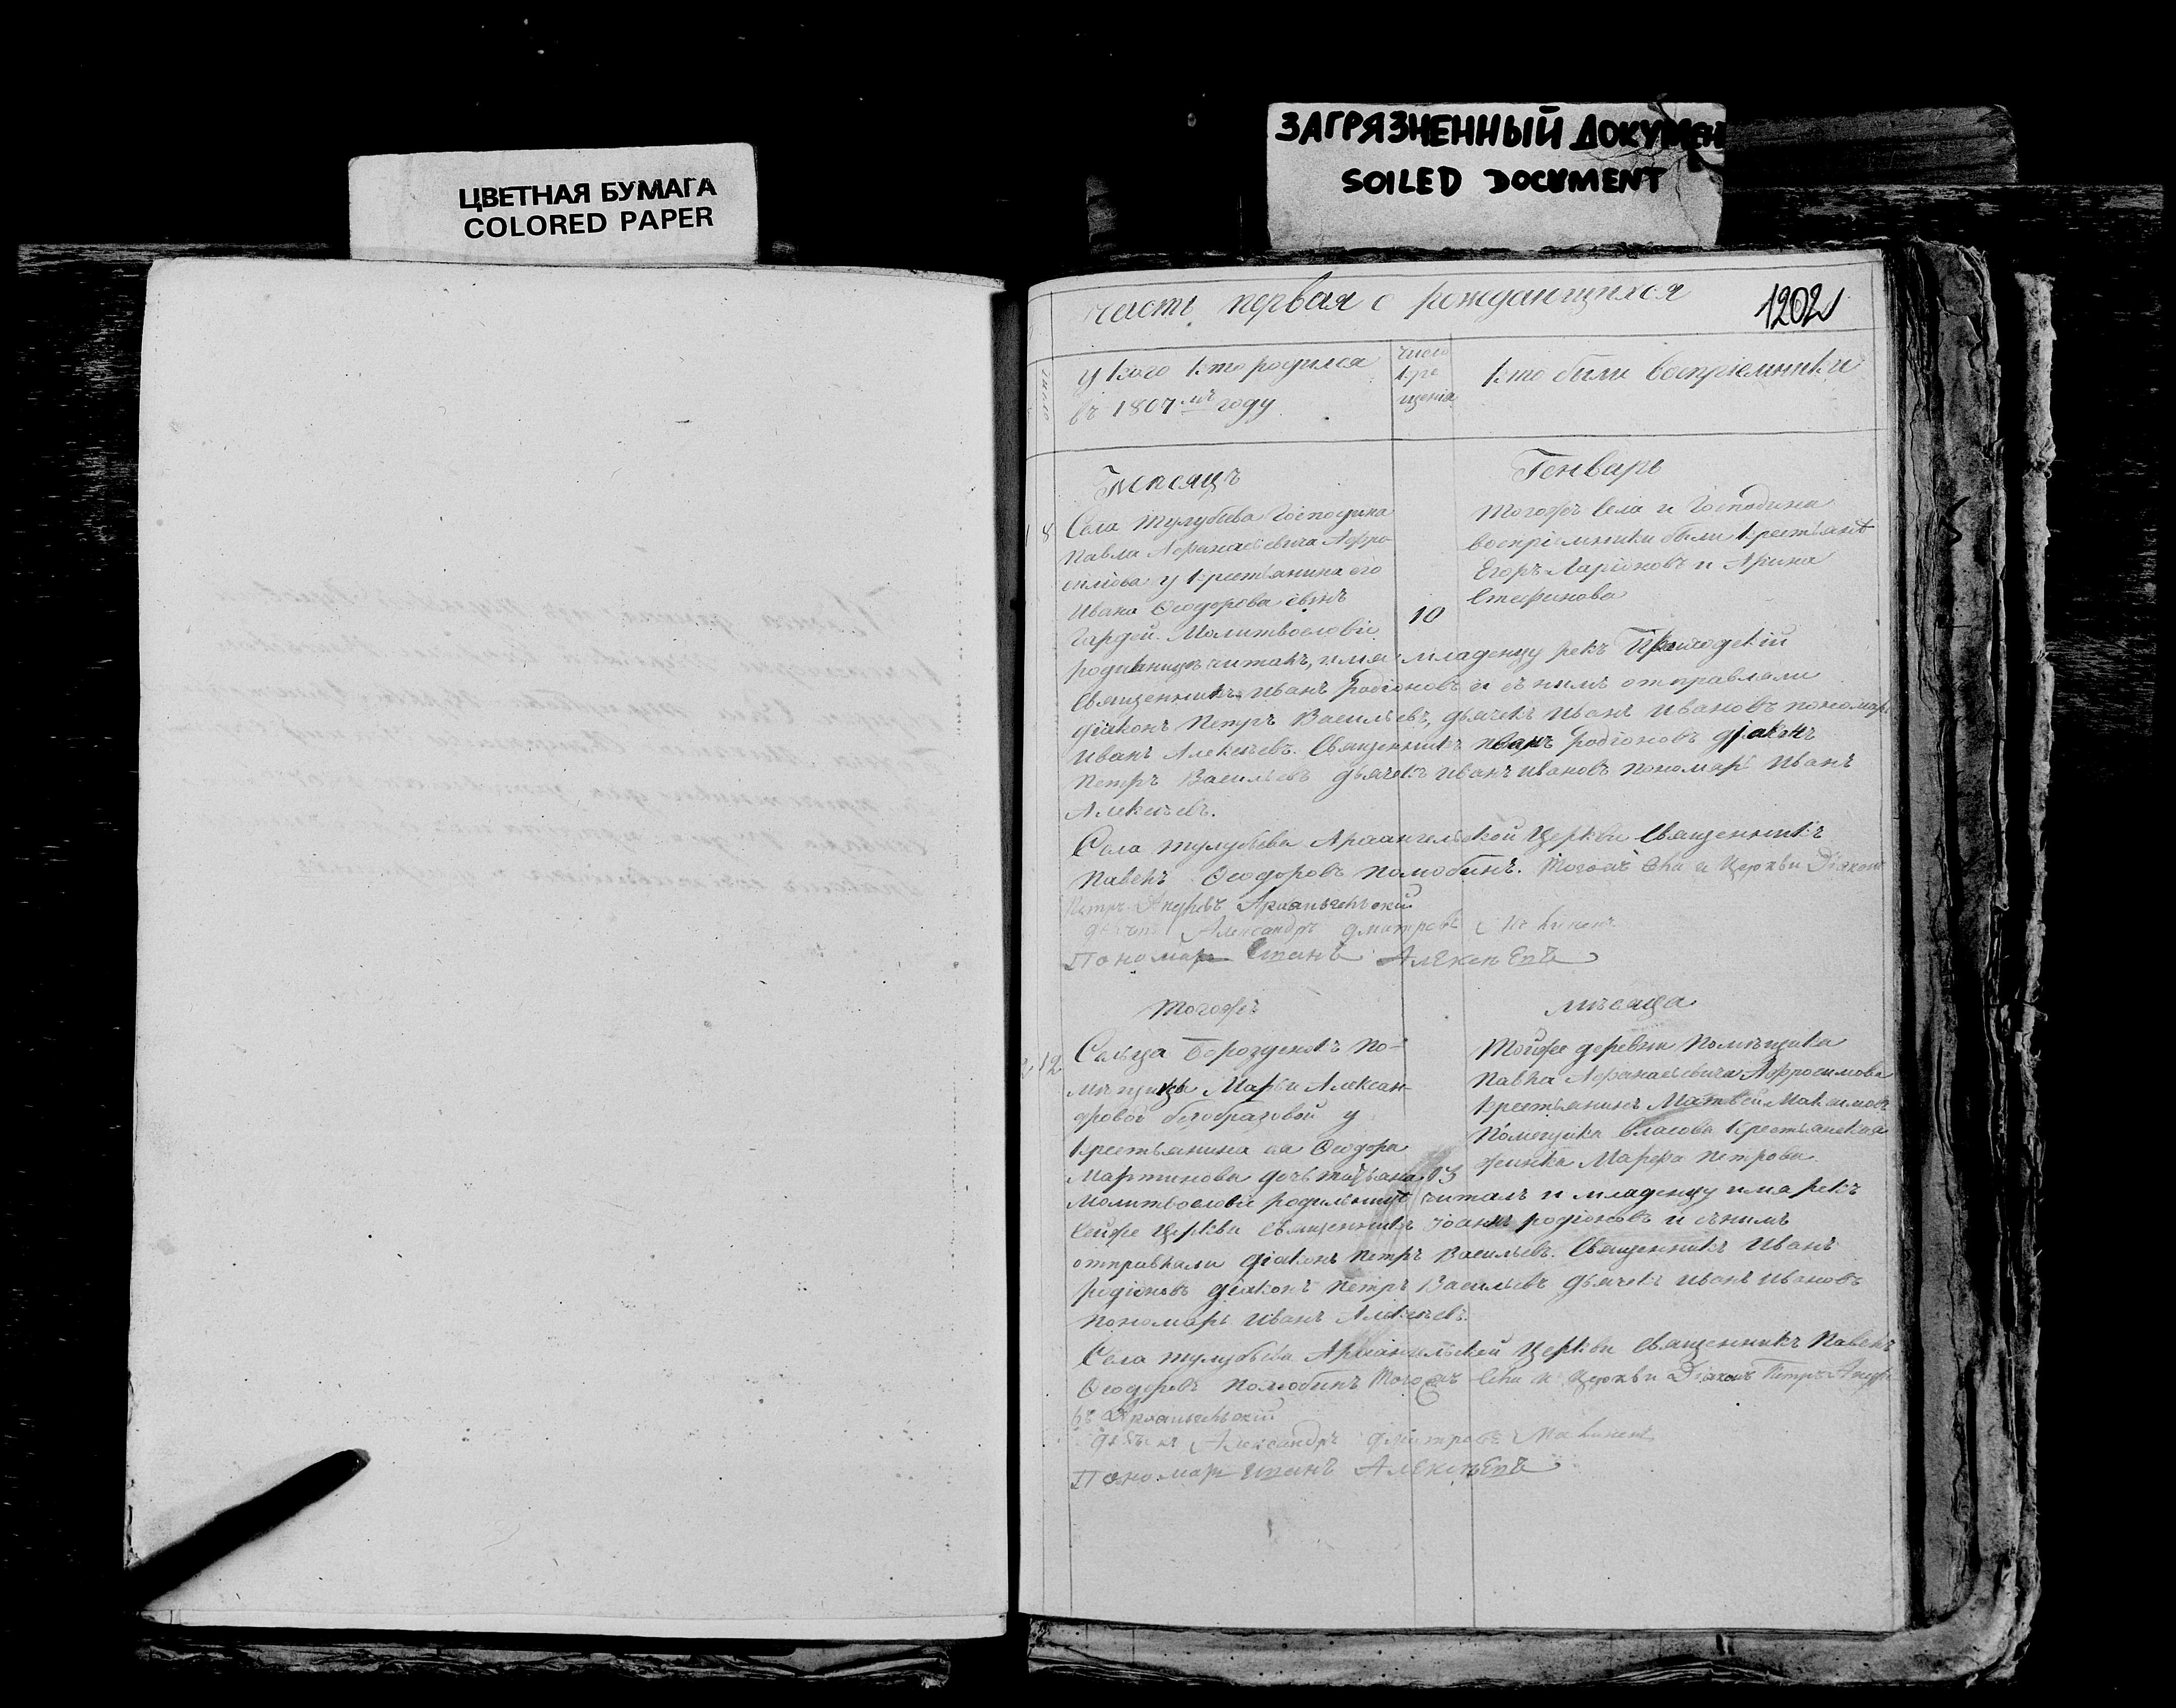 ЦВЕТНАЯ БУМАГА
COLORED PAPER
ЗАГРЯЗНЕННЫЙ ДОКУМЕН
SOILED DOCUMENT
часть первая о рождающихся
1202
число
у кого кто родился
въ 1807мъ году
число
кре
щенія
кто были воспріемники
Месяцъ
Генварь
1 8
Села тулубьева Господина
Павла Афанасьевича Афро-
симова у крестьянина его
Ивана Ѳеодорова сынъ
Гардей. Молитвословіе
10
тогожъ села и Господина
воспріемники были крестьянѣ
Егоръ Ларіоновъ и Арина
Стефанова
родильницѣ читалъ, имя младенцу рекъ Приходскій
Священникъ Иванъ Родіоновъ и съ нимъ отправляли
діаконъ Петръ Васильевъ, дьячекъ Иванъ Ивановъ пономарь
Иванъ Алексѣевъ. Священникъ Иванъ Родіоновъ діаконъ
Петръ Васильевъ дьячекъ Иванъ Ивановъ пономарь Иванъ
Алексѣевъ.
Села тулубьева Архангельской Церкви Священникъ
Павелъ Ѳеодоровъ Тогожъ Села и Церкви Діаконъ
Петръ Архангельскій
Александръ Дмитревъ
Пономарь Алексѣевъ
тогожъ
мѣсяца
2 12
Сельца Борозденокъ по-
мѣщицы Марьи Алексан-
дровой безобразовой у
крестьянина ея Ѳеодора
Мартинова дочь татьяна
13
тойже деревни помѣщика
Павла Афанасьевича Афросимова
крестьянинъ Матвей Максимовъ
помещика власова крестьянская
жинка Марфа Петрова.
Молитвословіе родильницѣ читалъ и младенцу имя рекъ
сейже Церкви священникъ Іоаннъ родіоновъ и съ нимъ
отправляли діаконъ Петръ Васильевъ. Священникъ Иванъ
родіоновъ діаконъ Петръ Васильевъ дьячекъ Иванъ Ивановъ
пономарь Иванъ Алексѣевъ.
Села тулубьева Архангельской Церкви Священникъ Павелъ
Ѳеодоровъ Тогожъ Села и Церкви Діаконъ Петръ
Архангельскій
Александръ Дмитревъ
Пономарь Алексѣевъ